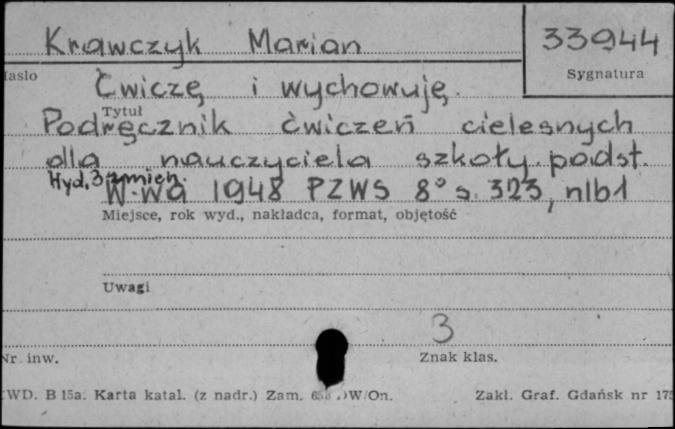 Krawczyk Marian
33944
Hasło
Sygnatura
Ćwiczę i wychowuję.
Tytuł
Podręcznik ćwiczeń cielesnych
dla nauczyciela szkoły podst.
Wyd. 3 zmien.
W-wa 1948 PZWS 8° s. 323, nlb1
Miejsce, rok wyd., nakładca, format, objętość
Uwagi
3
Nr. inw.
Znak klas.
CWD. B 15a. Karta katal. (z nadr.) Zam. W/On.
Zakl. Graf. Gdańsk nr 175